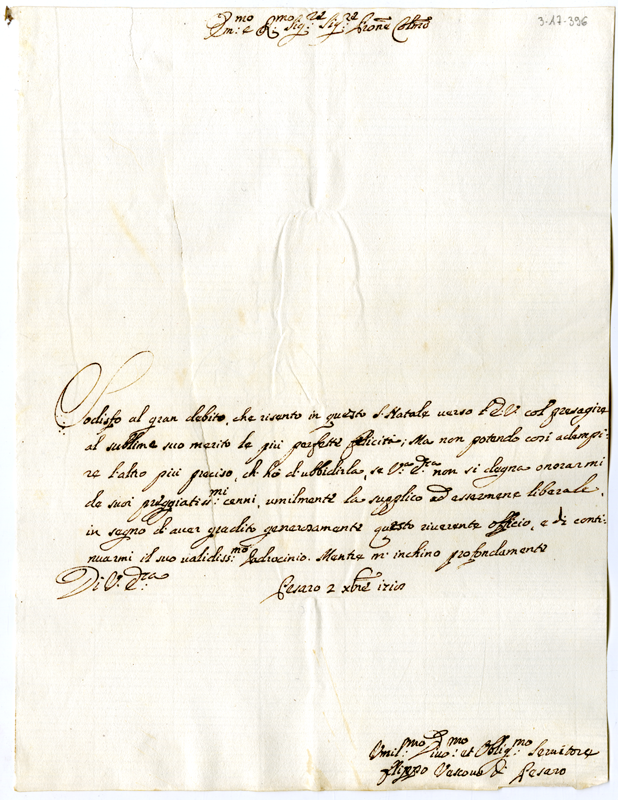 Em:mo e R:mo Sig:re Sig:re Prone Colmo
3-17-396
Sodisfo al gran debito, che risento in questo S. Natale verso l'E.V. col presagire
al sublime suo merito le piu perfette felicità; Ma non potendo così adempi-
re l'altro più preciso, ch'hò d'ubbidirla, se V.ra Em.za non si degna onorarmi
de suoi preggiatiss:mi cenni, umilmente la supplico ad essermene liberale,
in segno d'aver gradito generosamente questo riverente officio, e di conti-
nuarmi il suo validiss:mo Padrocinio. Mentre m'inchino profondamente
Di V. Em.za
Pesaro 2 Xbre
Umil:mo Div:mo et Oblig:mo Servitore
Filippo Vescovo di Pesaro